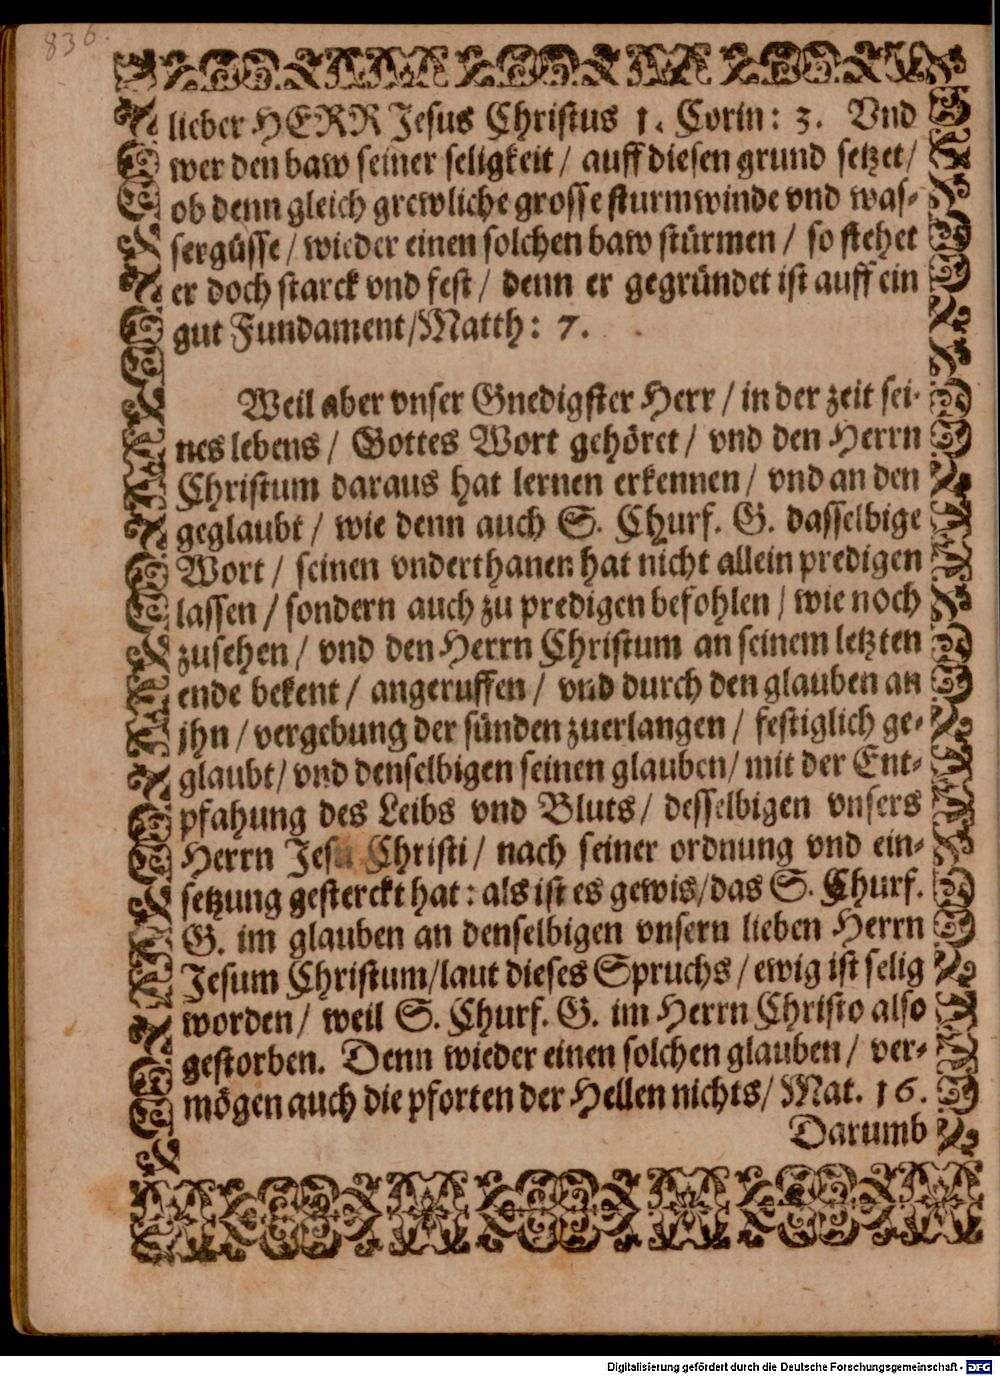 836.
lieber HERR Jesus Christus 1. Corin: 3. Vnd
wer den baw seiner seligkeit / auff diesen grund setzet /
ob denn gleich grewliche grosse sturmwinde vnd was-
sergüsse / wieder einen solchen baw stürmen / so stehet
er doch starck vnd fest / denn er gegründet ist auff ein
gut Fundament / Matth: 7.
Weil aber vnser Gnedigster Herr / in der zeit sei-
nes lebens / Gottes Wort gehöret / vnd den Herrn
Christum daraus hat lernen erkennen / vnd an den
geglaubt / wie denn auch S. Churf. G. dasselbige
Wort / seinen vnderthanen hat nicht allein predigen
lassen / sondern auch zu predigen befohlen / wie noch
zusehen / vnd den Herrn Christum an seinem letzten
ende bekent / angeruffen / vnd durch den glauben an
jhn / vergebung der sünden zuerlangen / festiglich ge-
glaubt / vnd denselbigen seinen glauben / mit der Ent-
pfahung des Leibs vnd Bluts / desselbigen vnsers
Herrn Jesu Christi / nach seiner ordnung vnd ein-
setzung gesterckt hat : als ist es gewis / das S. Churf.
G. im glauben an denselbigen vnsern lieben Herrn
Jesum Christum / laut dieses Spruchs / ewig ist selig
worden / weil S. Churf. G. im Herrn Christo also
gestorben. Denn wieder einen solchen glauben / ver-
mögen auch die pforten der Hellen nichts / Mat. 16.
Darumb
Digitalisierung gefördert durch die Deutsche Forschungsgemeinschaft - DFG